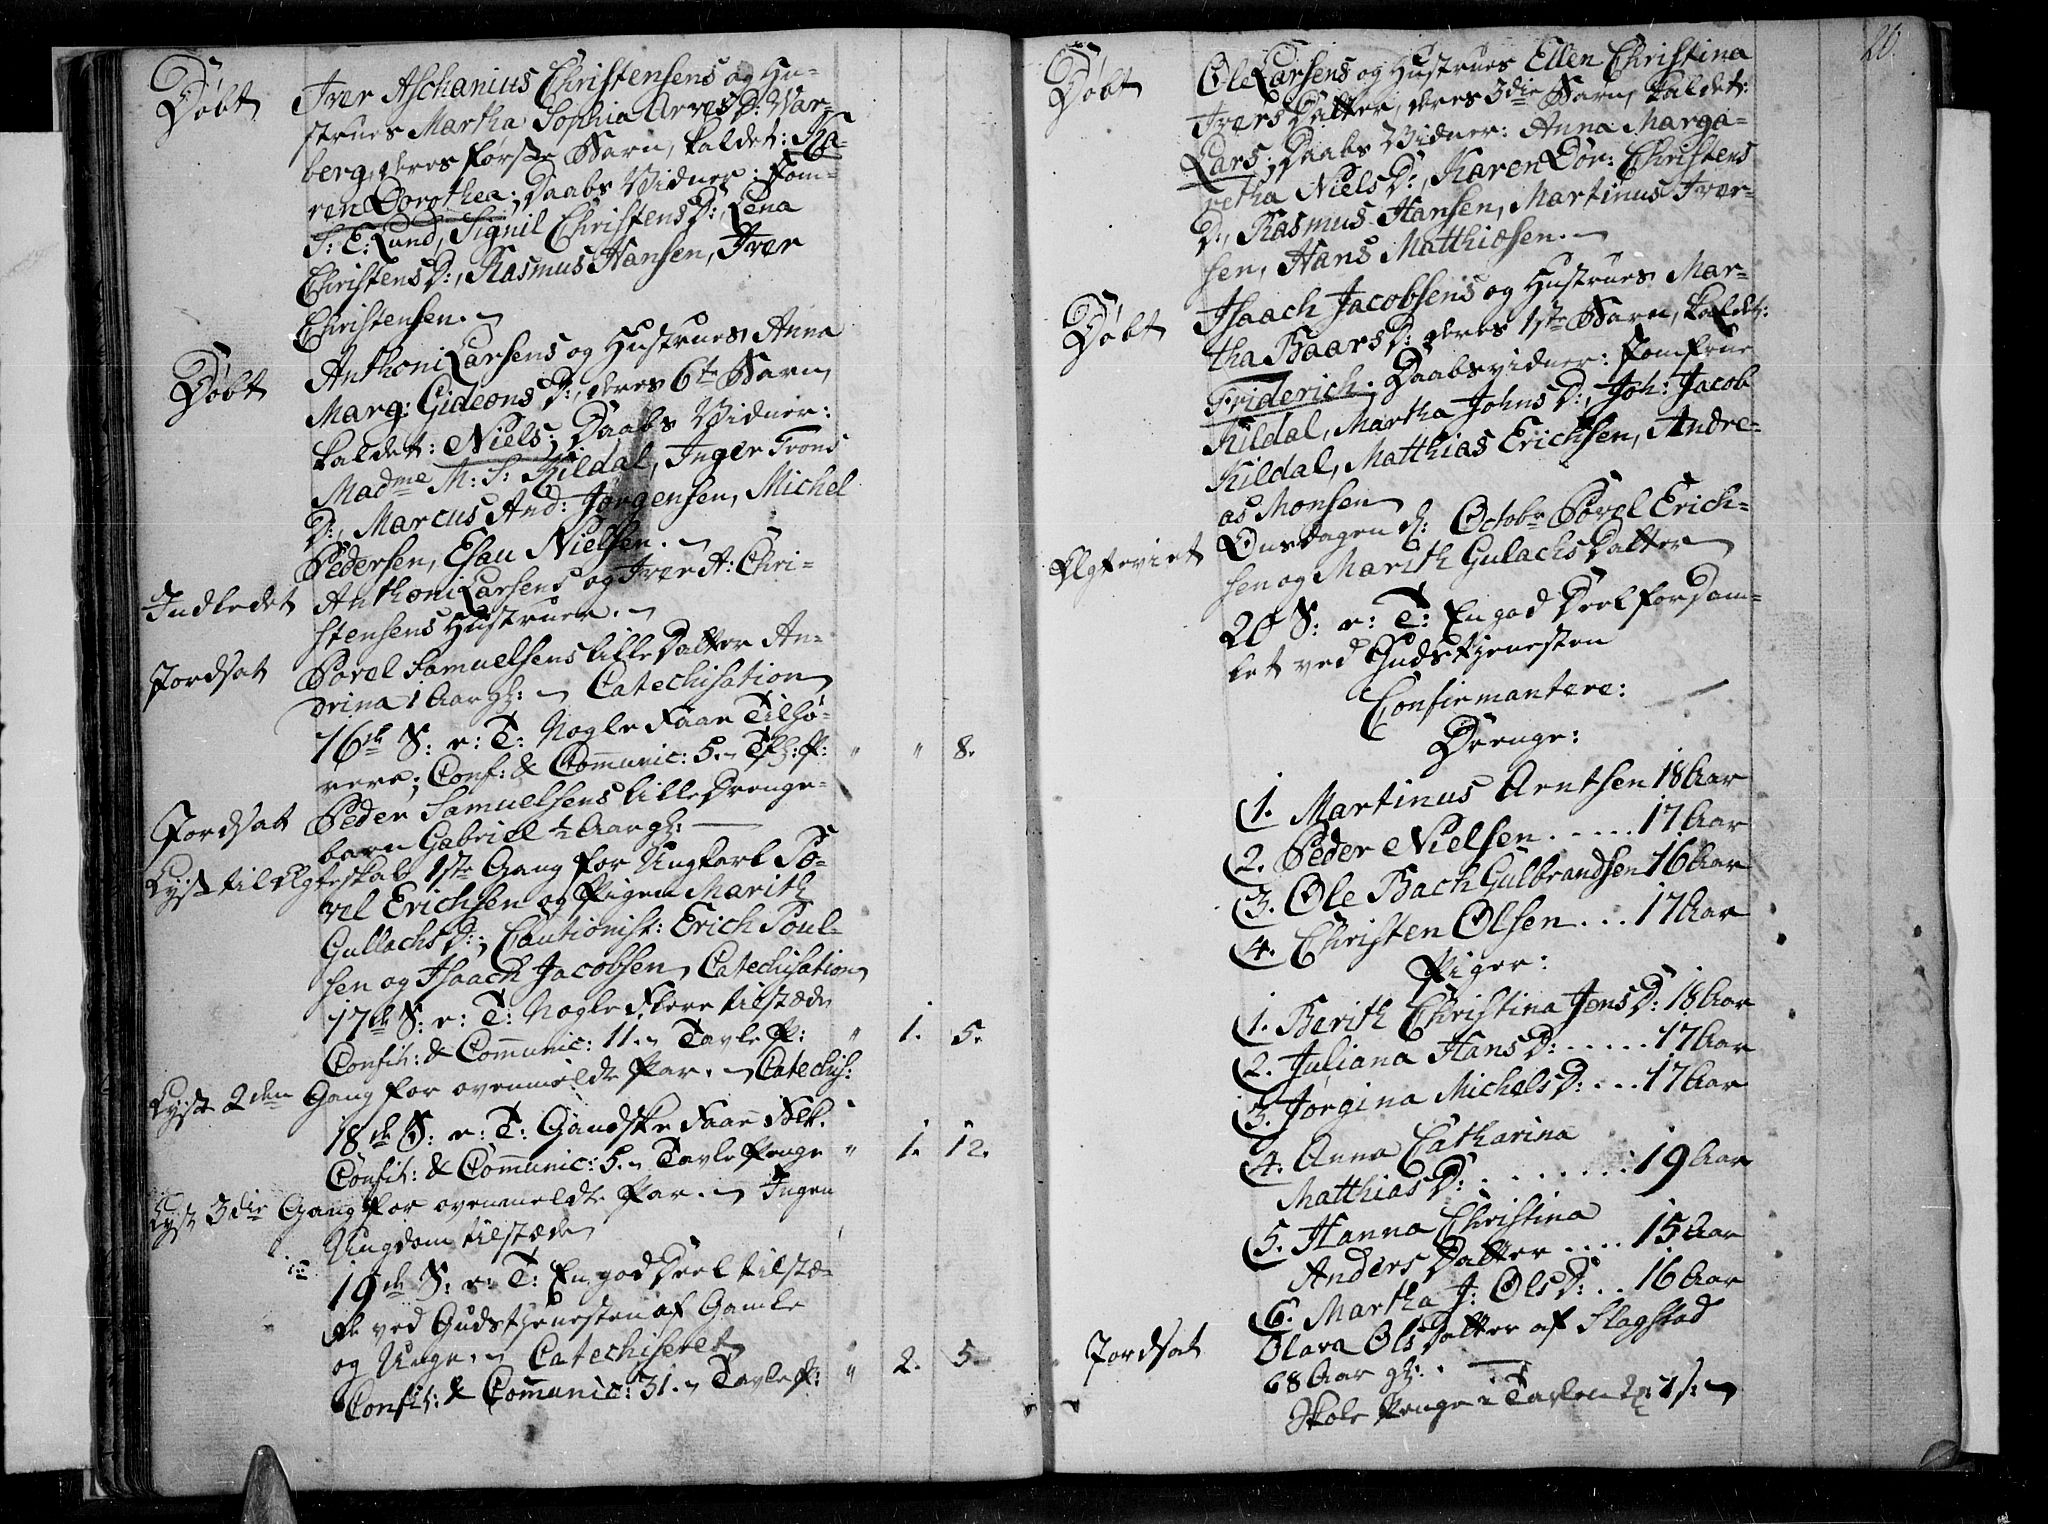 Døbt Iver Aschanius Christensens og Hu-
strues Martha Sophia Arves D: War-
berg, deres første Barn, kaldet: Ka-
ren Dorothea; Daabs Vidner: Jom-
S: E: Lund, Signil Christens D:, Lena
Christens D:, Rasmus Hansen, Iver
Christensen.
Døbt Anthoni Larsens og Hustrues Anna
Marg: Gideons D:, deres 6te Barn,
kaldet: Niels; Daabs Vidner:
Madme M: S: Kildal, Inger Trons
D:, Marcus And: Jørgensen, Michel
Pedersen, Esau Nielsen.
Indledet Anthoni Larsens og Iver A: Chri-
stensens Hustruer.
Jordsat Povel Samuelsens lille Datter An-
drina 1 Aar gl: Catechisation
16de S: e: T: Nogle Faae Tilhø-
rere; Conf: & Comunic: 5. Tfl: P: " " 8.
Jordsat Peder Samuelsens lille Drenge-
barn Gabriel ½ Aar gl:
Lyst til Ægteskab 1ste Gang for Ungkarl Po-
vel Erichsen og Pigen Marith
Gullachs D:; Cautionist: Erich Poul-
sen og Isaach Jacobsen, Catechisation
17de S: e: T: Nogle Flere tilstæde
Confit: & Communic: 11. Tavle P: " 1. 5.
Lyst 2den Gang for ovenmeldte Par. Catechis:
18de S: e: T: Gandske Faae Folk.
Confit: & Comunic: 5. Tavle Penge " 1. 12.
Lyst 3die Gang for ovenmeldte Par. Ingen
Ungdom tilstæde
19de S: e: T: En god Deel tilstæ-
de ved Gudstjenesten af Gamle
og Unge. Catechiseret
Confit: & Comunic: 31. Tavle P: " 2. 5.
20.
Døbt Ole Larsens og Hustrues Ellen Christina
Ivers Datter, deres 3die Barn, kaldet:
Lars; Daabs Vidner: Anna Marga-
retha Niels D:, Karen Dor: Christens
D:, Rasmus Hansen, Martinus Iver-
sen, Hans Matthiesen.
Døbt Isaach Jacobsens og Hustrues Mar-
tha Baars D: deres 1ste Barn, kaldet:
Friderich. Daabsvidner: Jomfrue
Kildal, Martha Johns D:, Joh: Jacob
Kildal, Matthias Erichsen, Andre-
as Monsen
Ægteviet Onsdagen d: Octobr Povel Erich-
sen og Marith Gulachs Datter
20 S: e: T: En god Deel forsam-
let ved Gudstjenesten
Confirmantere:
Drenge:
1. Martinus Arntsen 18 Aar
2. Peder Nielsen. . . . . . 17 Aar
3. Ole Bach Gulbrandsen 16 Aar
4. Christen Olsen . . . 17 Aar
Piger:
1. Berith Christina Jens D: 18 Aar
2. Juliana Hans D: . . . . . 17 Aar
3. Jørgina Michels D: . . . 17 Aar
4. Anna Catharina
Matthias D: . . . . . . . . 19 Aar
5. Hanna Christina
Anders Datter . . . . 15 Aar
6. Martha J: Ols D: . . 16 Aar
Jordsat Olava Ols Datter af Slagstad
68 Aar gl:
Skole Penge i Tavlen